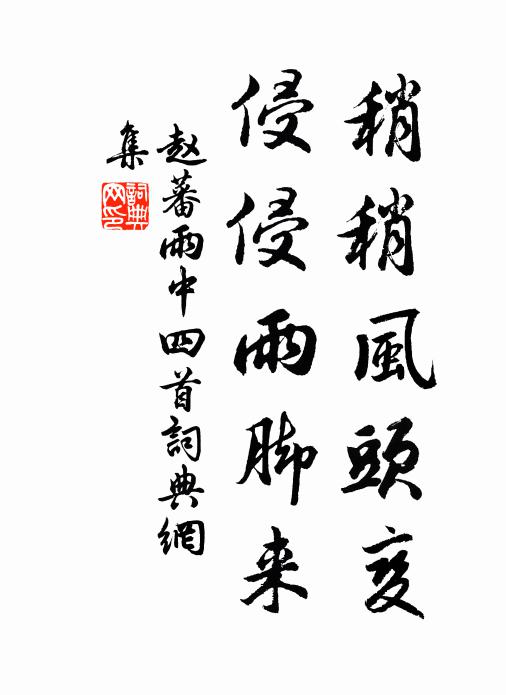 稍稍風頭变
侵侵雨脚来
赵蕃雨中四首詞典網
集
詞典网印